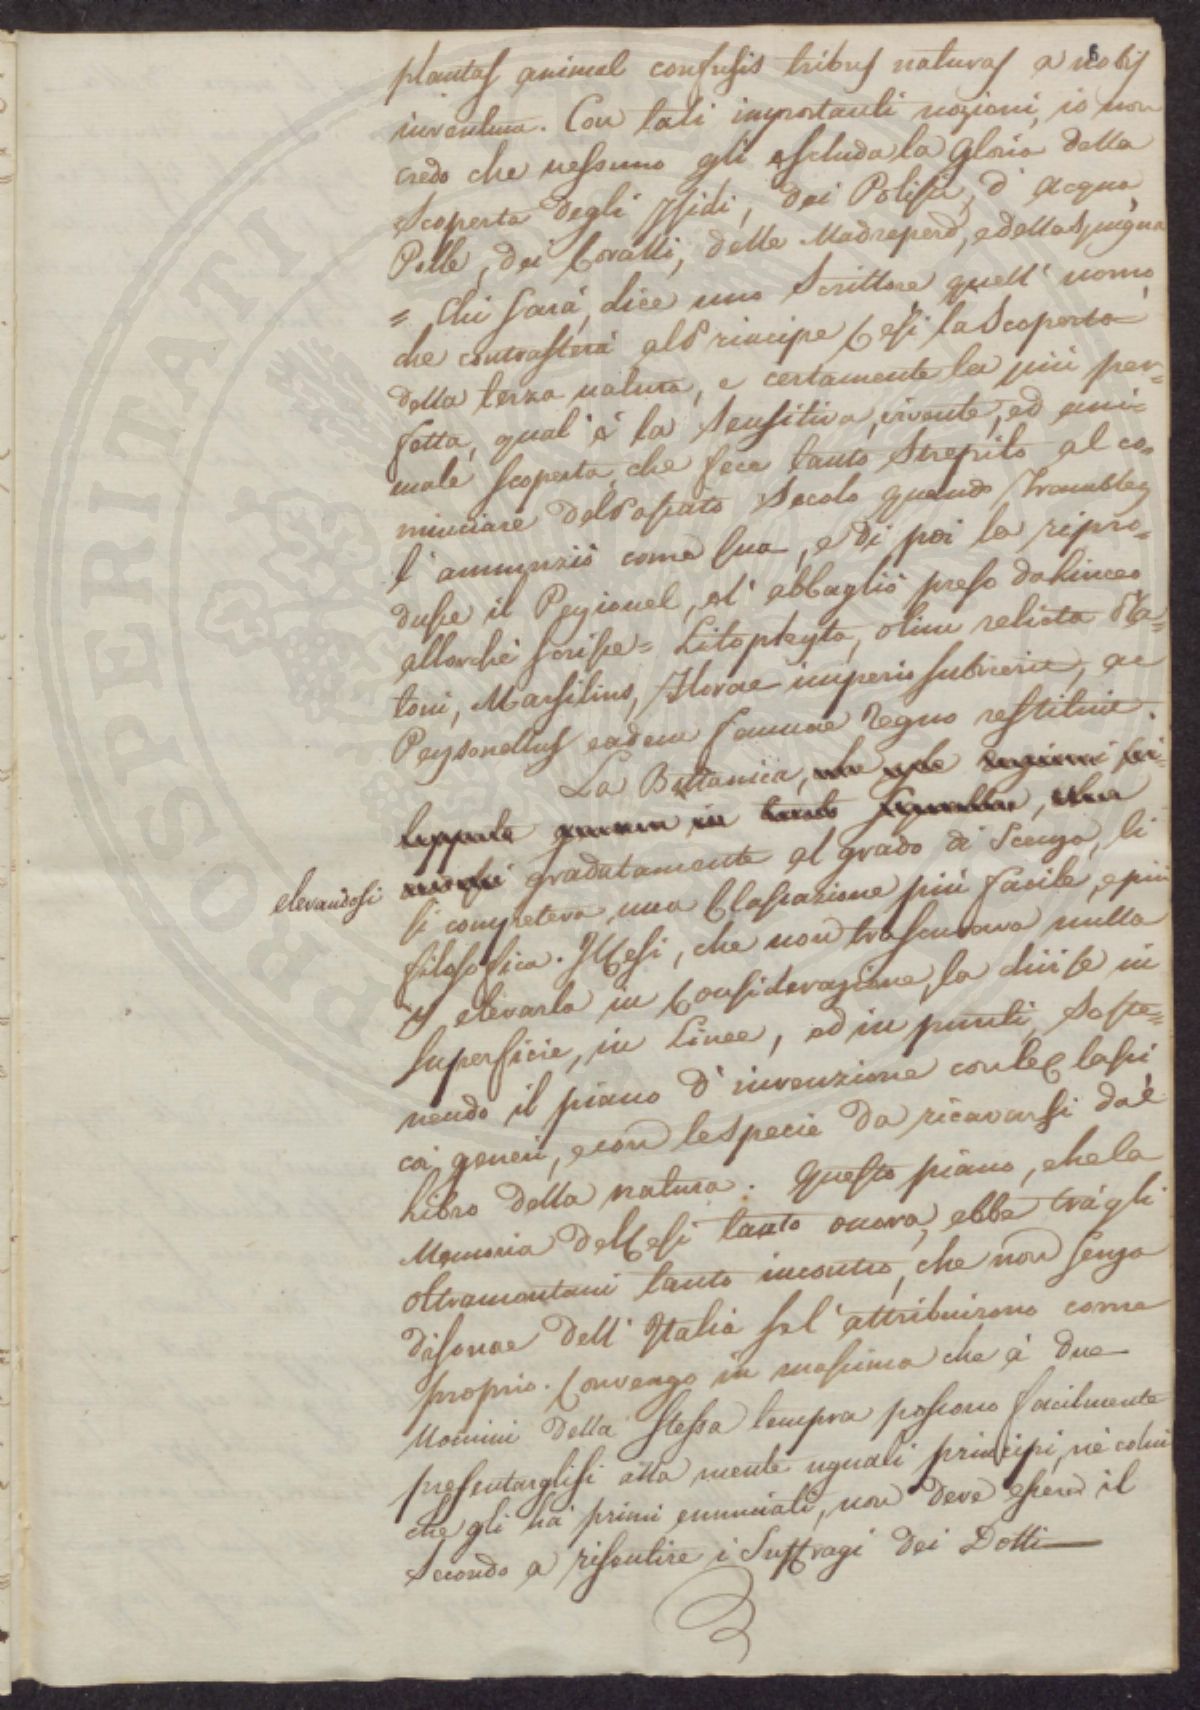 6
plantas animal confusis tribus naturas a nobis
inventum. Con tali importanti nozioni, io non
credo che nessuno gli escluda la Gloria della
Scoperta degli Isidi, dei Polipi, d'Acqua
Polle, dei Coralli, delle Madrepere, e della Spugna
= Chi sarà, dice uno Scrittore quell'uomo
che contrasterà al Principe Cesi la Scoperta
della terza natura, e certamente la più per=
fetta, qual'è la Sensitiva, vivente, ed ani=
male scoperta, che fece tanto Strepito al co=
minciare del Passato Secolo quando Trambley
l'annunziò come sua, e di poi la ripro=
dusse il Peyionel, ed l'abbaglio preso da Linceo
allorchè scrisse= Litophyta, olim relicta Na=
toni, Marsilius, Florae imperio subiicere, ac
Peysonellus eadem faunae regno restituit.
La Bottanica,
elevandosi
gradatamente al grado di Scienza, li
si competeva una Classazione più facile, e più
filosofica. Il Cesi, che non trascurava nulla
p elevarla in Considerazione, la divise in
superficie, in Linee, ed in punti, Soste=
nendo il piano d'invenzione con le Classi,
coi generi, e con le specie da ricavarsi dal
Libro della natura. Questo piano, che la
Memoria del Cesi tanto onora, ebbe tragli
oltramontani tanto incontro, che non senza
disonore dell'Italia sel'attribuirono come
proprio. Convengo in massima che à due
Uomini della stessa tempra possono facilmente
presentarglisi alla mente uguali principi, nè colui
che gli hà primi enunciati, non deve essere il
Secondo a risentire i Suffragi dei Dotti